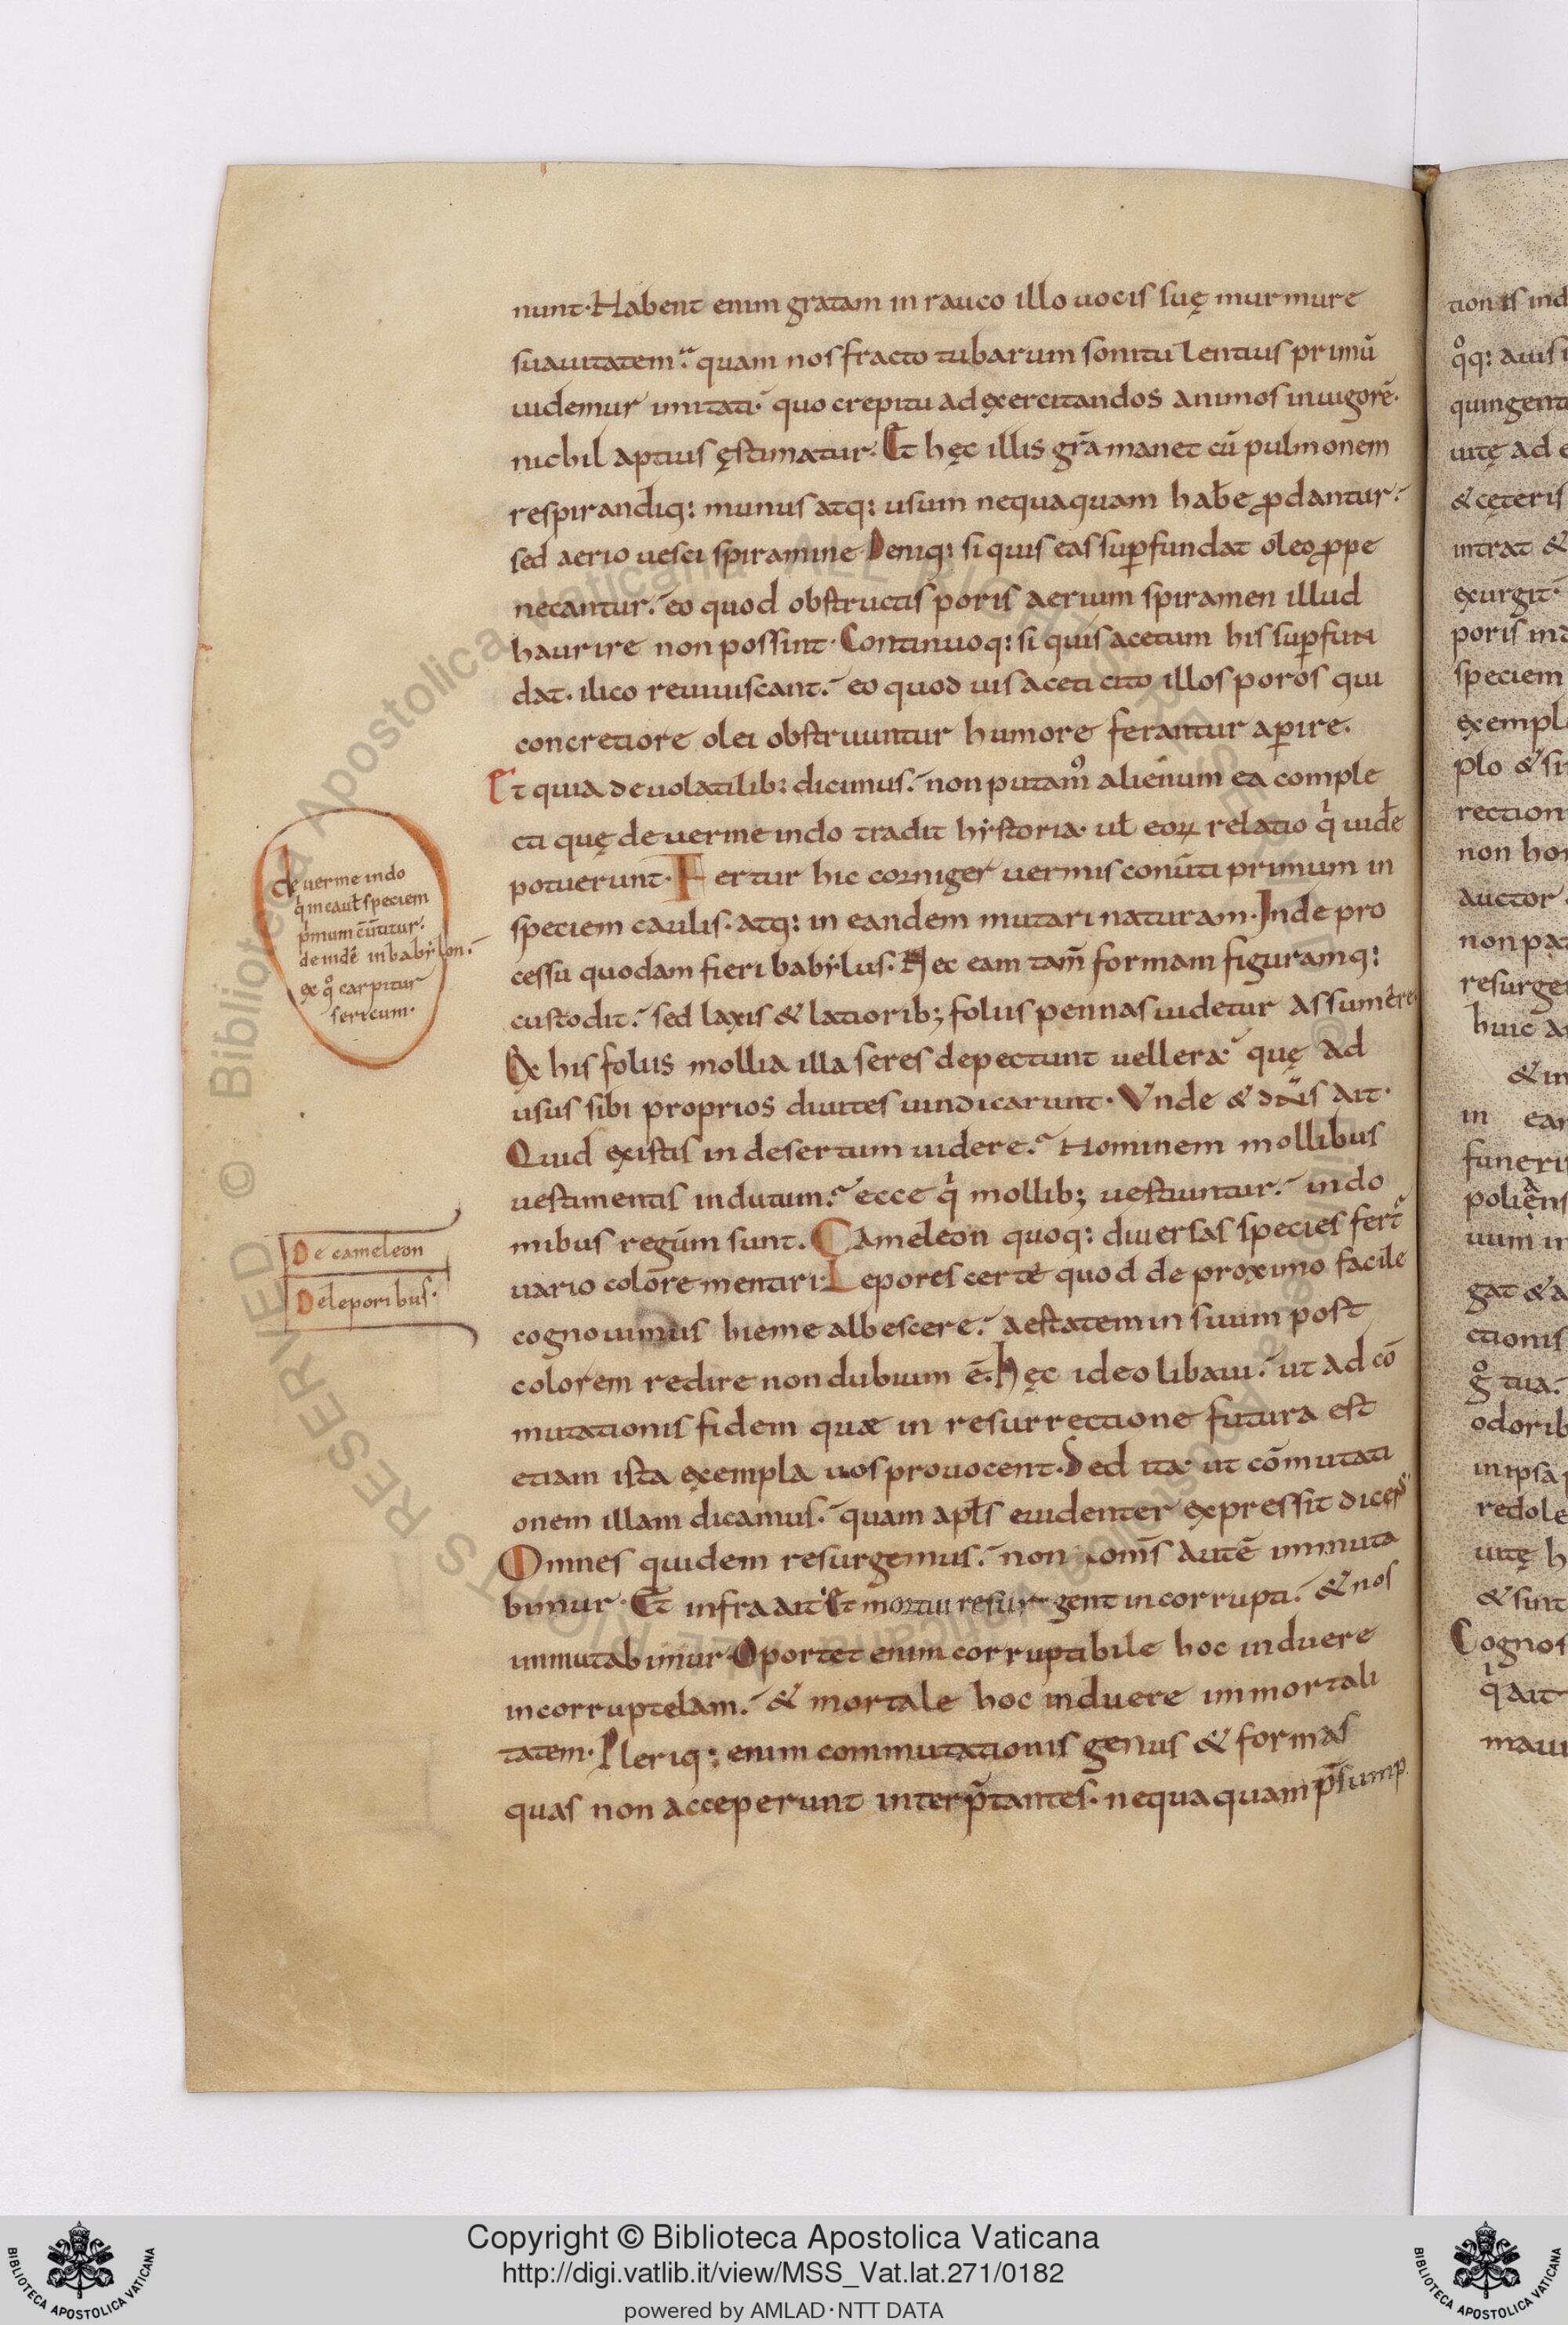 nunt. Habent enim gratam in rauco illo uocis suę murmure
suauitatem. quam nos fracto tubarum sonitu lentius primū
uidemur imitati. quo crepitu ad exercitandos animos in uigorē.
nichil aptius ęstimatur. Et hęc illis grā manet cū pulmonem
respirandiq: munus atq: usum nequaquam habe ꝓdantur.
sed aerio uesci spiramine. Deniq: si quis eas suꝑfundat oleo ꝓpe
necantur. eo quod obstructis poris aerium spiramen illud
haurire non possint. Continuoq: si quis acetum his suꝑfun
dat. ilico reuiuiscant. eo quod uis aceti cito illos poros qui
concretiore olei obstruuntur humore ferantur aꝑire.
Et quia de uolatilib: dicimus. non putamꝰ alienum ea comple
cti quę de uerme indo tradit hẏstoria. uł eoꝝ relatio qͥ uidē
potuerunt. Fertur hic corniger uermis conūti primum in
speciem caulis. atq: in eandem mutari naturam. Inde pro
cessu quodam fieri babẏlus. Nec eam tam̄ formam figuramq:
custodit. sed laxis & latiorib; foliis pennas uidetur assumere
Ex his foliis mollia illa seres depectunt uellera. quę ad
usus sibi proprios diuites uindicarunt. Vnde & dn̄s ait.
Quid existis in desertum uidere. Hominem mollibus
uestimentis indutum. ecce qͥ mollib; uestiuntur. in do
mibus regum sunt. Cameleon quoq: diuersas species fert̄
uario colore mentiri. Lepores certe quod de proximo facile
cognouimus hieme albescere. aestatem in suum post
colorem redire non dubium ē. Hęc ideo libaui. ut ad cō
mutationis fidem quae in resurrectione futura est
etiam ista exempla uos prouocent. Sed ita ut cōmutati
onem illam dicamus. quam apłs euidenter expressit dicens
Omnes quidem resurgemus. non om̄s autē immuta
bimur. Et infra ait Et mortui resurgent incorrupti. & nos
immutabimur. Oportet enim corruptibile hoc induere
incorruptelam. & mortale hoc induere immortali
tatem. Pleriq: enim commutationis genus & formas
quas non acceperunt interp̄tantes. nequaquam p̄sump
de uerme indo
qͥ in caulꝭ speciem
pͥmum cūtitur.
deindē in babẏlon.
ex qͦ carpitur
sericum.
De cameleon
De leporibus.
tionis ind
qͦq: auis
quingent
uitę ad e
& cęteris
intrat &
exurgit.
poris ind
speciem
exempl
plo & si
rection
non ho
auctor
non pa
resurge
huic a
& in
in ear
funeri
uum in
gat & a
ctionis
gͦ tua.
odorib
in ipsa
redole
uitę h
& sunt
Cognos
qͥ ait
maui
Copyright © Biblioteca Apostolica Vaticana
http://digi.vatlib.it/view/MSS_Vat.lat.271/0182
powered by AMLAD·NTT DATA
BIBLIOTECA APOSTOLICA VATICANA
BIBLIOTECA APOSTOLICA VATICANA